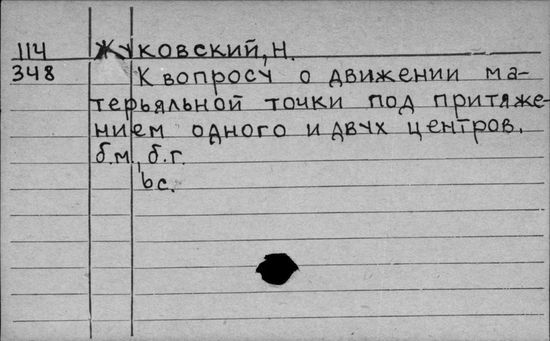 114 Жуковский, Н.
348 К вопросу о движении ма-
терьяльной точки под притяже-
нием одного и двух центров.
б.м., б.г.
6с.